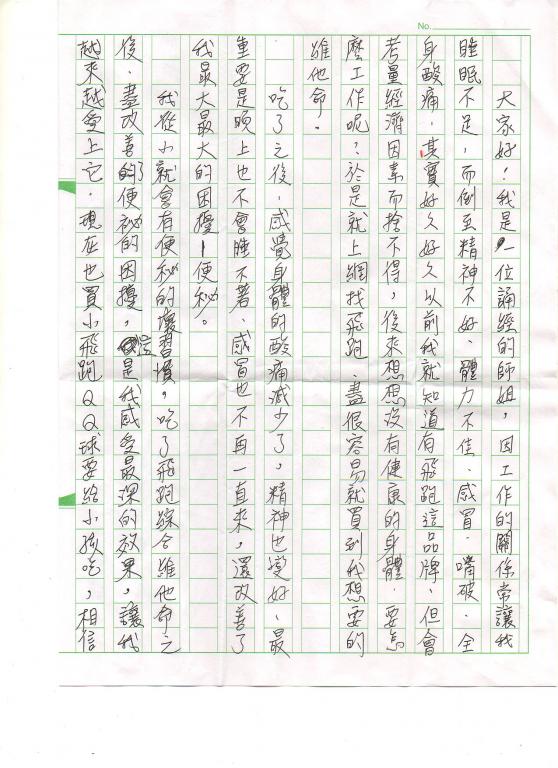 No.
大家好！我是一位誦經的師姐，因工作的關係常讓我
睡眠不足，而倒至精神不好、體力不佳、感冒、嘴破、全
身酸痛，其實好久好久以前我就知道有飛跑這品牌，但會
考量經濟因素而捨不得，後來想想沒有健康的身體，要怎
麼工作呢？於是就上網找飛跑，盡很容易就買到我想要的
維他命。
吃了之後，感覺身體的酸痛減少了，精神也變好、最
重要是晚上也不會睡不著、感冒也不再一直來，還改善了
我最大最大的困擾－便秘。
我從小就會有便秘的壞習慣，吃了飛跑綜合維他命之
後，盡改善了便秘的困擾，這是我感受最深的效果，讓我
越來越愛上它。現在也買小飛跑QQ球要給小孩吃，相信